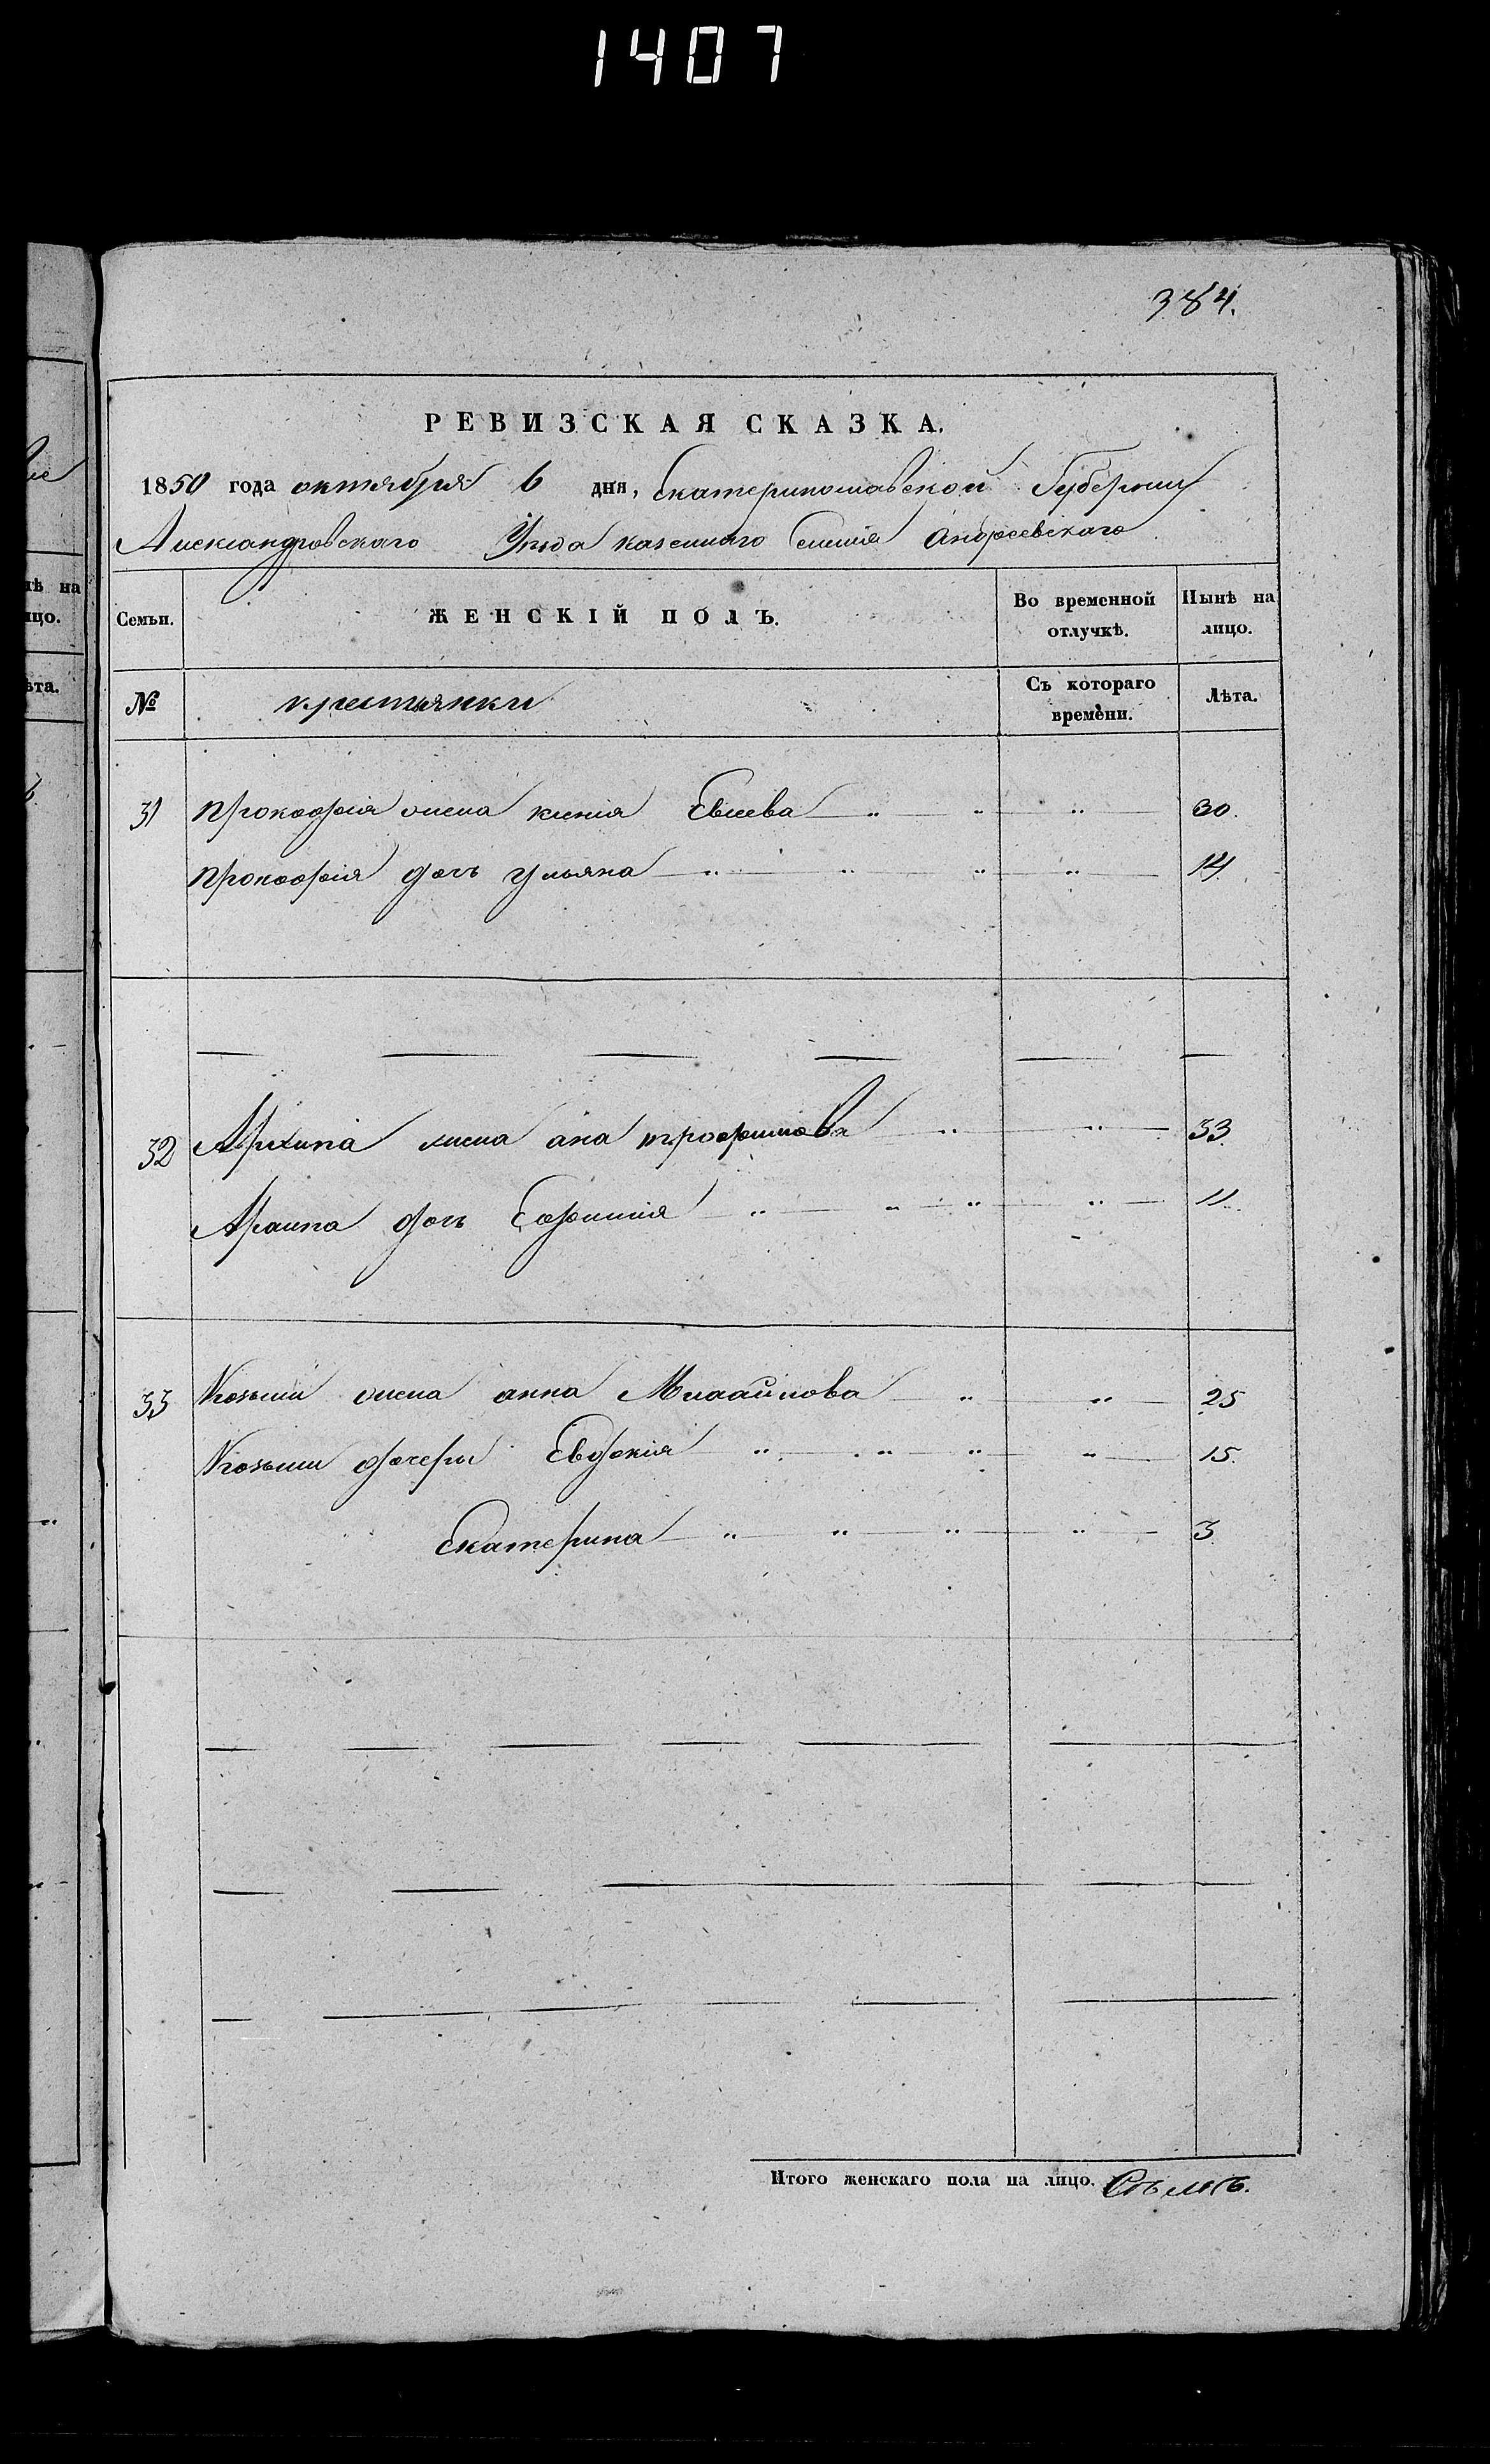 1407
384.
РЕВИЗСКАЯ СКАЗКА.
1850 года октября 6 дня, Екатеринославской Губернии
Александровского Уезда казенного селенія Андреевского
Семьи. ЖЕНСКІЙ ПОЛЪ. Во временной отлучкѣ. Нынѣ на лицо.
№ крестьянки Съ котораго времени. Лѣта.
31 Прокофія жена ксенія Евсеева 30.
Прокофія дочь ульяна 14
32 Архипа жена ана трофимова 33
Архипа дочь Евфимія 11.
33 Козьми жена анна Михайлова 25
Козьми дочери Евдокія 15.
Екатерина 3
Итого женскаго пола на лицо. Сѣмь.
нѣ на
лицо.
ѣта.